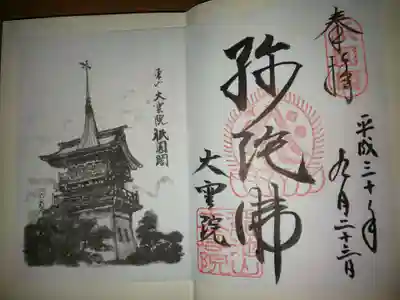 奉拝
平成三十年
九月二十三日
弥陀佛
大雲院
東山大雲院祇園閣